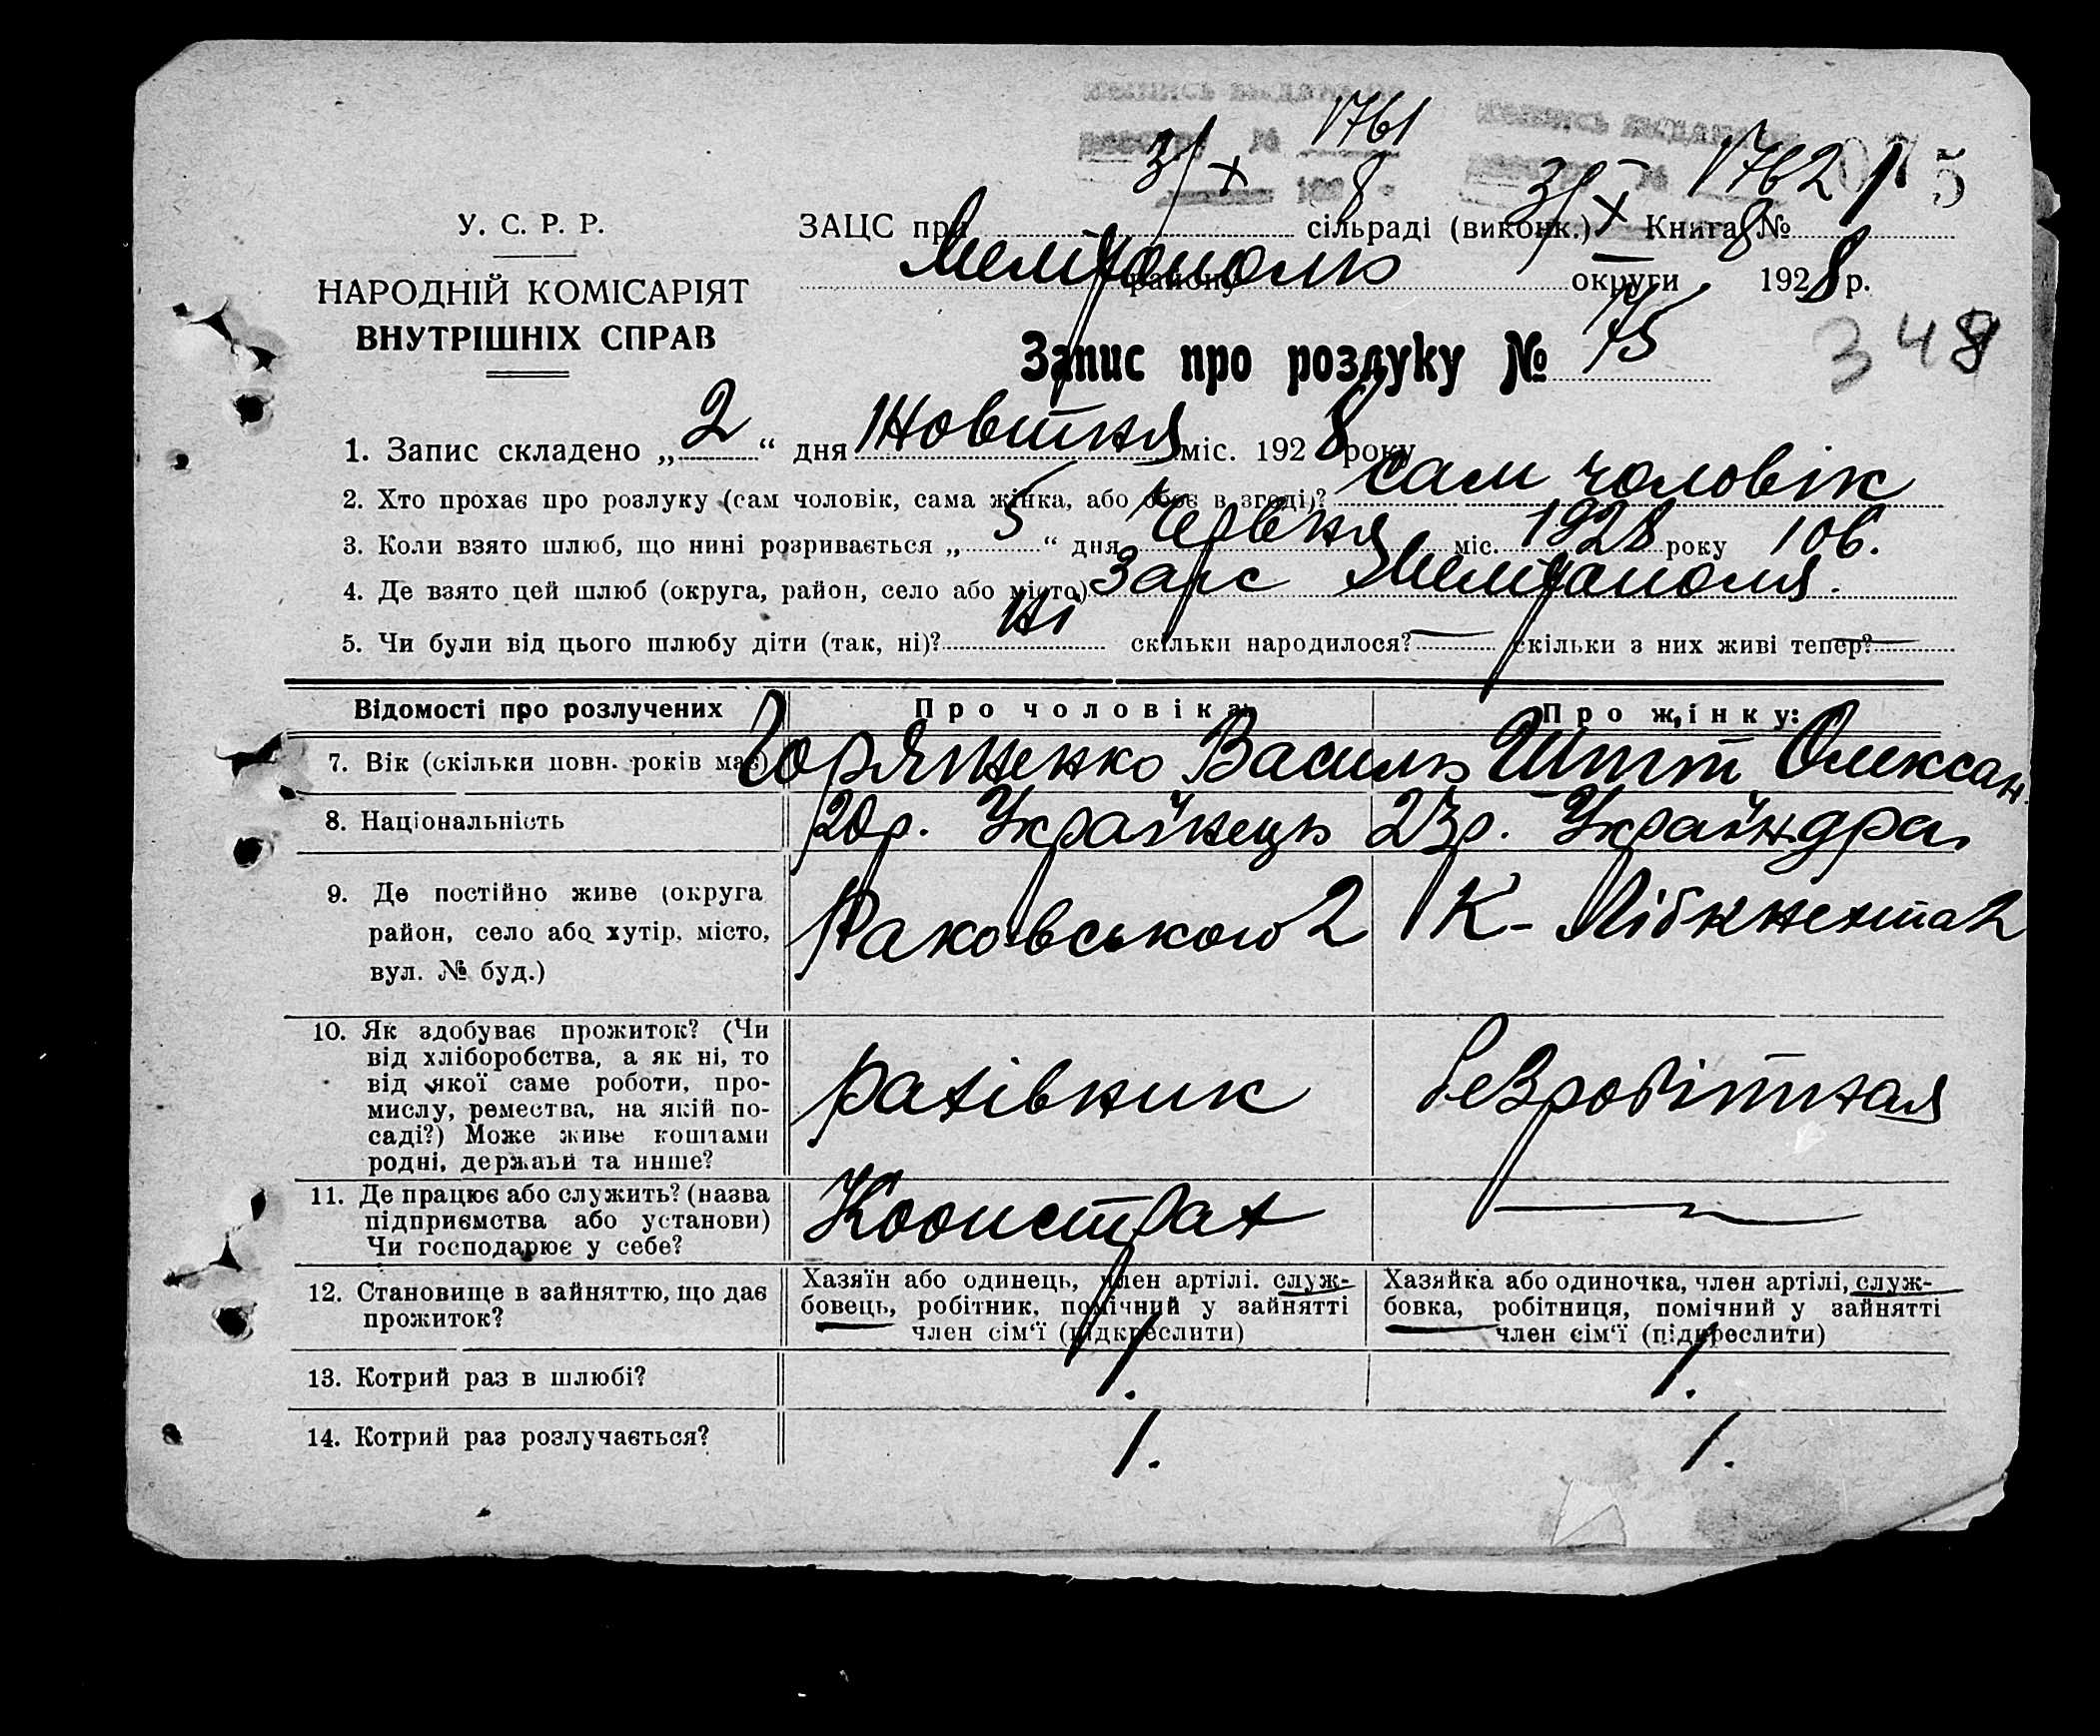 1761
3/X 8
1762
3/X 8
5
У. С. Р. Р.
НАРОДНІЙ КОМІСАРІЯТ
ВНУТРІШНІХ СПРАВ
ЗАЦС при сільраді (виконк.) Книга №
Мелітополь району округи 1928 р.
Запис про розлуку № 75
348
1. Запис складено „2“ дня Жовтня міс. 1928 року
2. Хто прохає про розлуку (сам чоловік, сама жінка, або обоє в згоді)? сам чоловік
3. Коли взято шлюб, що нині розривається „5“ дня Червня міс. 1928 року
4. Де взято цей шлюб (округа, район, село або місто) Загс Мелітополя.
5. Чи були від цього шлюбу діти (так, ні)? Ні скільки народилося? — скільки з них живі тепер? —
Відомості про розлучених Про чоловіка: Про жінку:
7. Вік (скільки повн. років має) Горяненко Василь Штт Олексан
8. Національність 20р. Українець 23р. Україн дра
9. Де постійно живе (округа Раковського 2 К-Лібкнехта 2
район, село або хутір, місто,
вул. № буд.)
10. Як здобуває прожиток? (Чи
від хліборобства, а як ні, то
від якої саме роботи, про-
мислу, ремества, на якій по-
саді?) Може живе коштами
родні, держави та инше?
рахівник безробітная
11. Де працює або служить? (назва
підприємства або установи)
Чи господарює у себе?
Коопстрах —
12. Становище в зайняттю, що дає
прожиток?
Хазяїн або одинець, член артілі. служ-
бовець, робітник, помічний у зайнятті
член сім'ї (підкреслити)
Хазяйка або одиночка, член артілі, служ-
бовка, робітниця, помічний у зайнятті
член сім'ї (підкреслити)
13. Котрий раз в шлюбі? 1. 1.
14. Котрий раз розлучається? 1. 1.